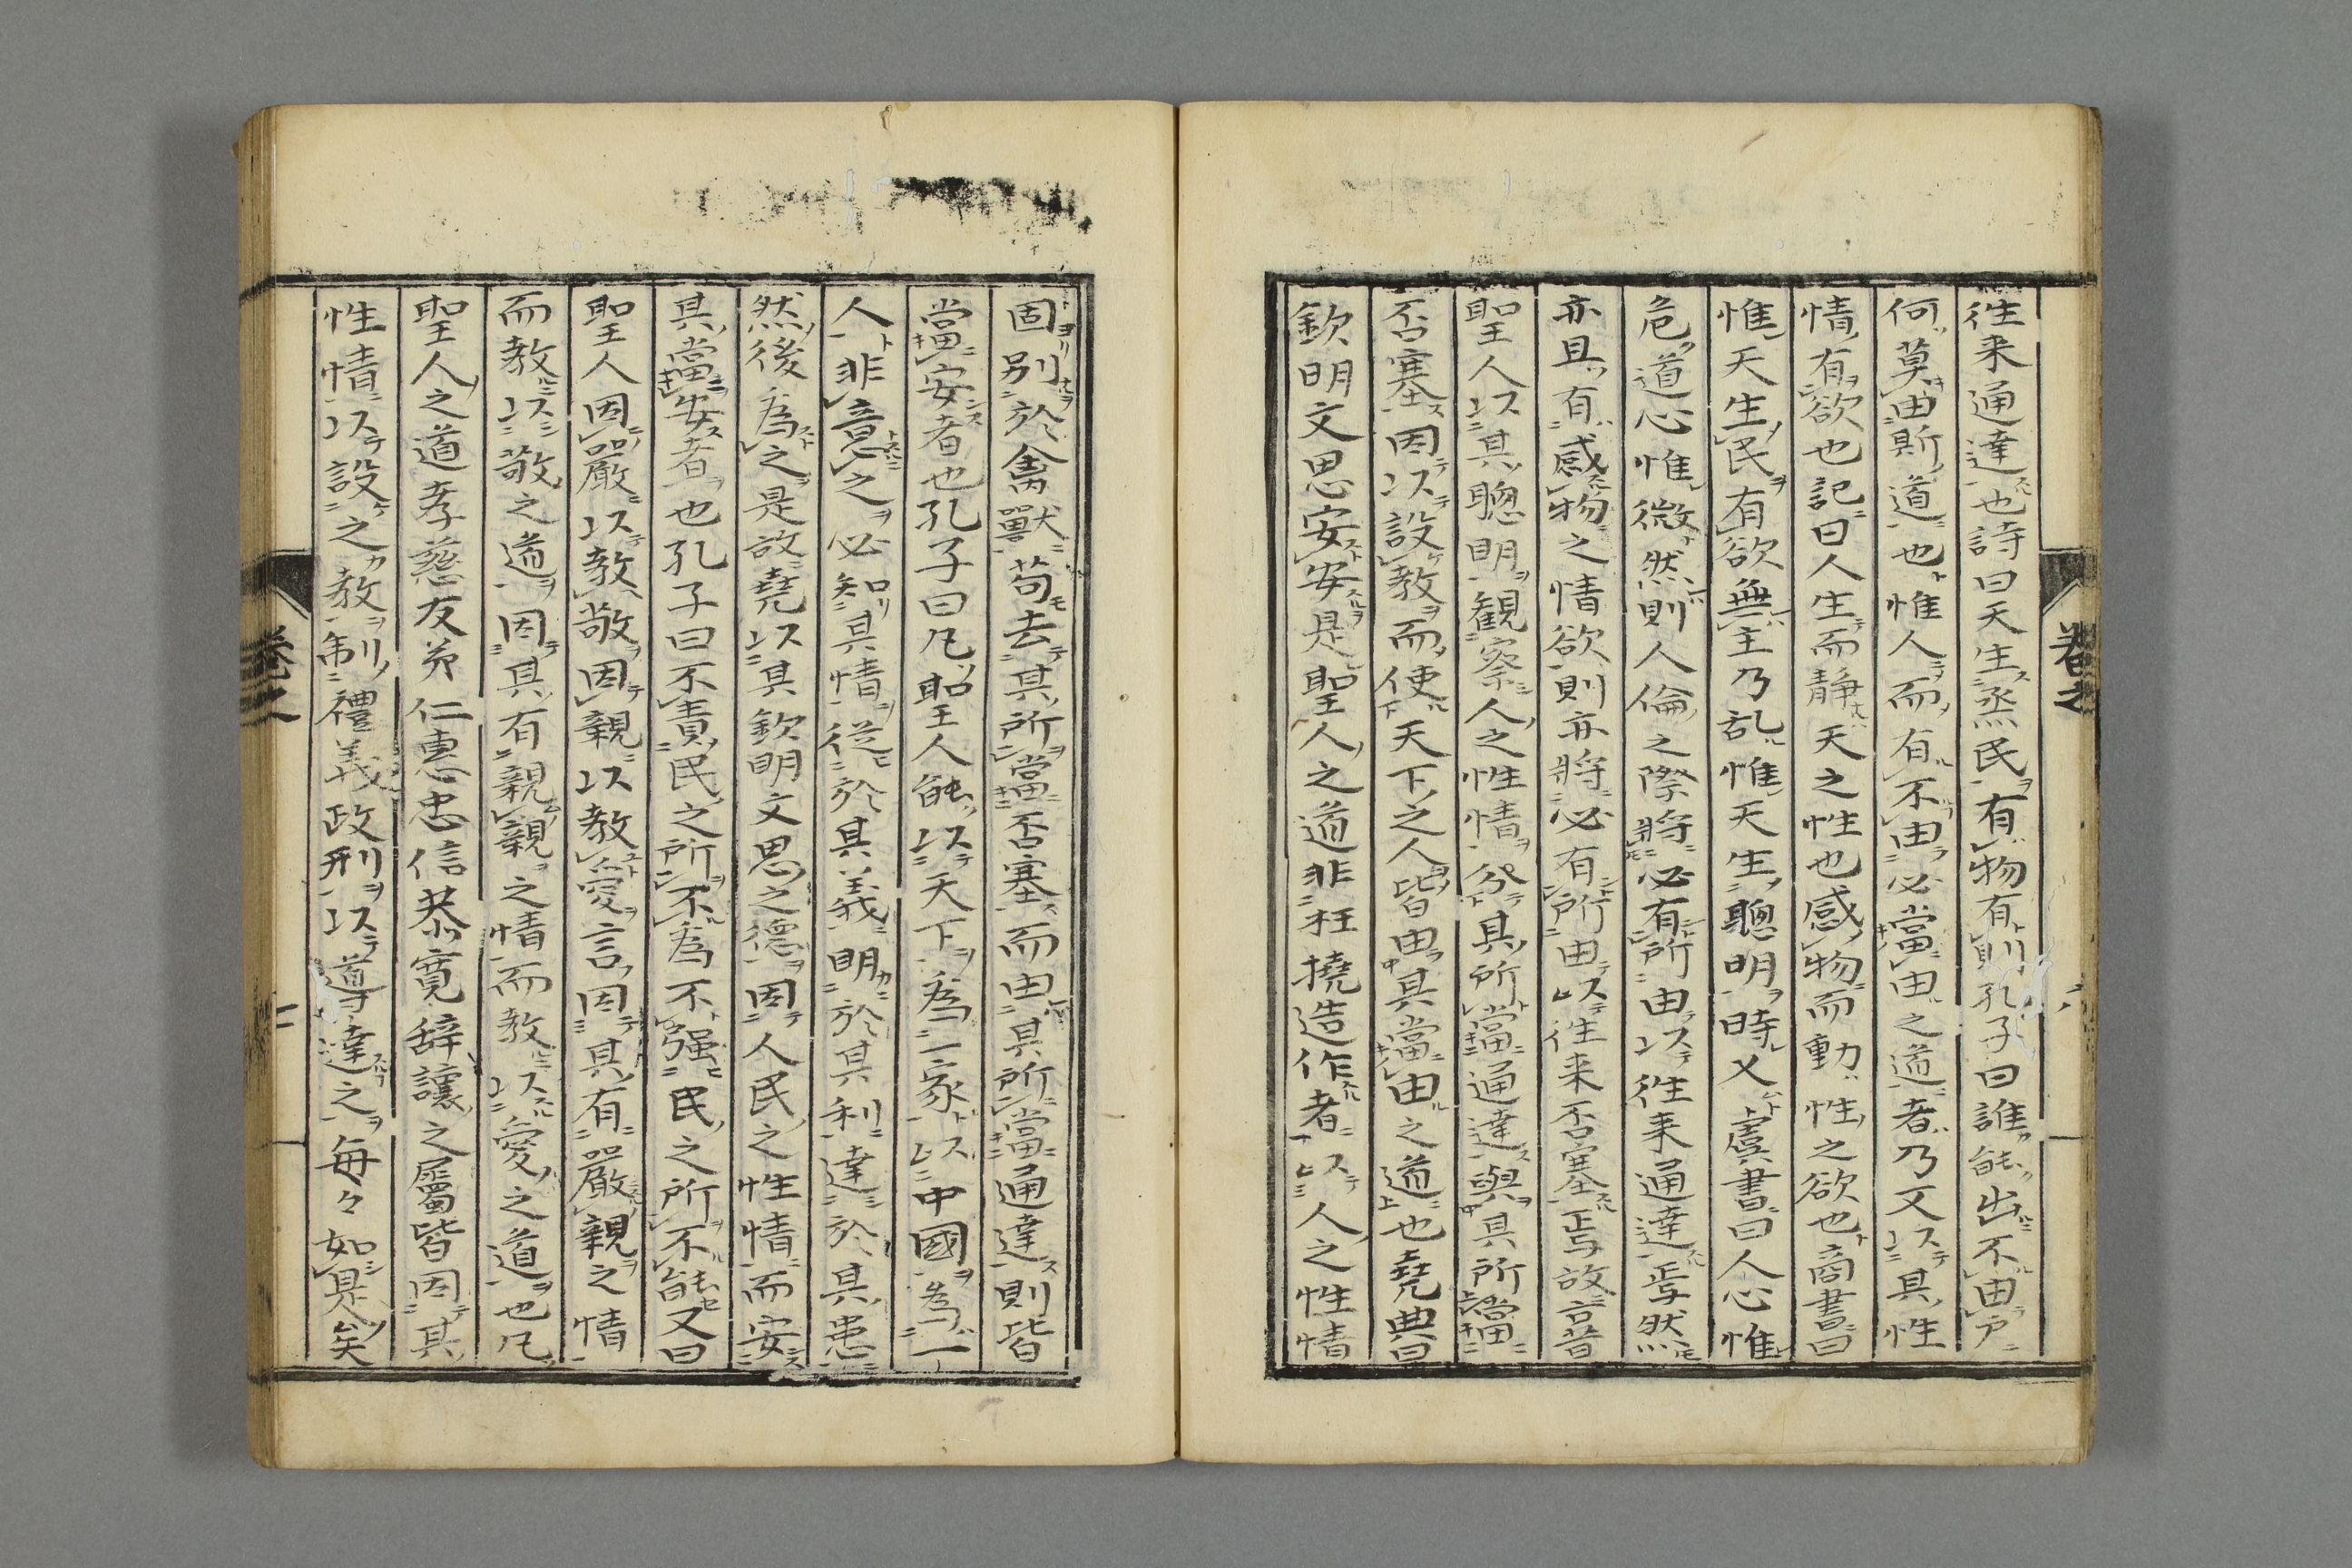 往来通達也詩曰天生烝民有物有則孔子曰誰能出不由戸
何莫由斯道也惟人而有不由必當由之道者乃又以其性
情有欲也記曰人生而静天之性也感物而動性之欲也商書曰
惟天生民有欲無主乃乱惟天生聰明時乂虞書曰人心惟
危道心惟微然則人倫之際將必有所由以往来通達焉然
亦且有感物之情欲則亦將必有所由以往来否塞焉故古昔
聖人以其聰明觀察人之性情分其所當通達與其所當
否塞因以設教而使天下之人皆由其當由之道也堯典曰
欽明文思安安是聖人之道非枉撓造作者以人之性情
固別於禽獸苟去其所當否塞而由其所當通達則皆
當安者也孔子曰凡聖人能以天下為一家以中國為一
人非意之必知其情從於其義明於其利達於其患
然後為之是故堯以其欽明文思之德因人民之性情而安
其當安者也孔子曰不責民之所不為不强民之所不能又曰
聖人因嚴以教敬因親以教愛言因其有嚴親之情
而教以敬之道因其有親親之情而教以愛之道也凡
聖人之道孝慈友弟仁惠忠信恭寛辞讓之屬皆因其
性情以設之教制禮義政刑以導達之毎々如是矣